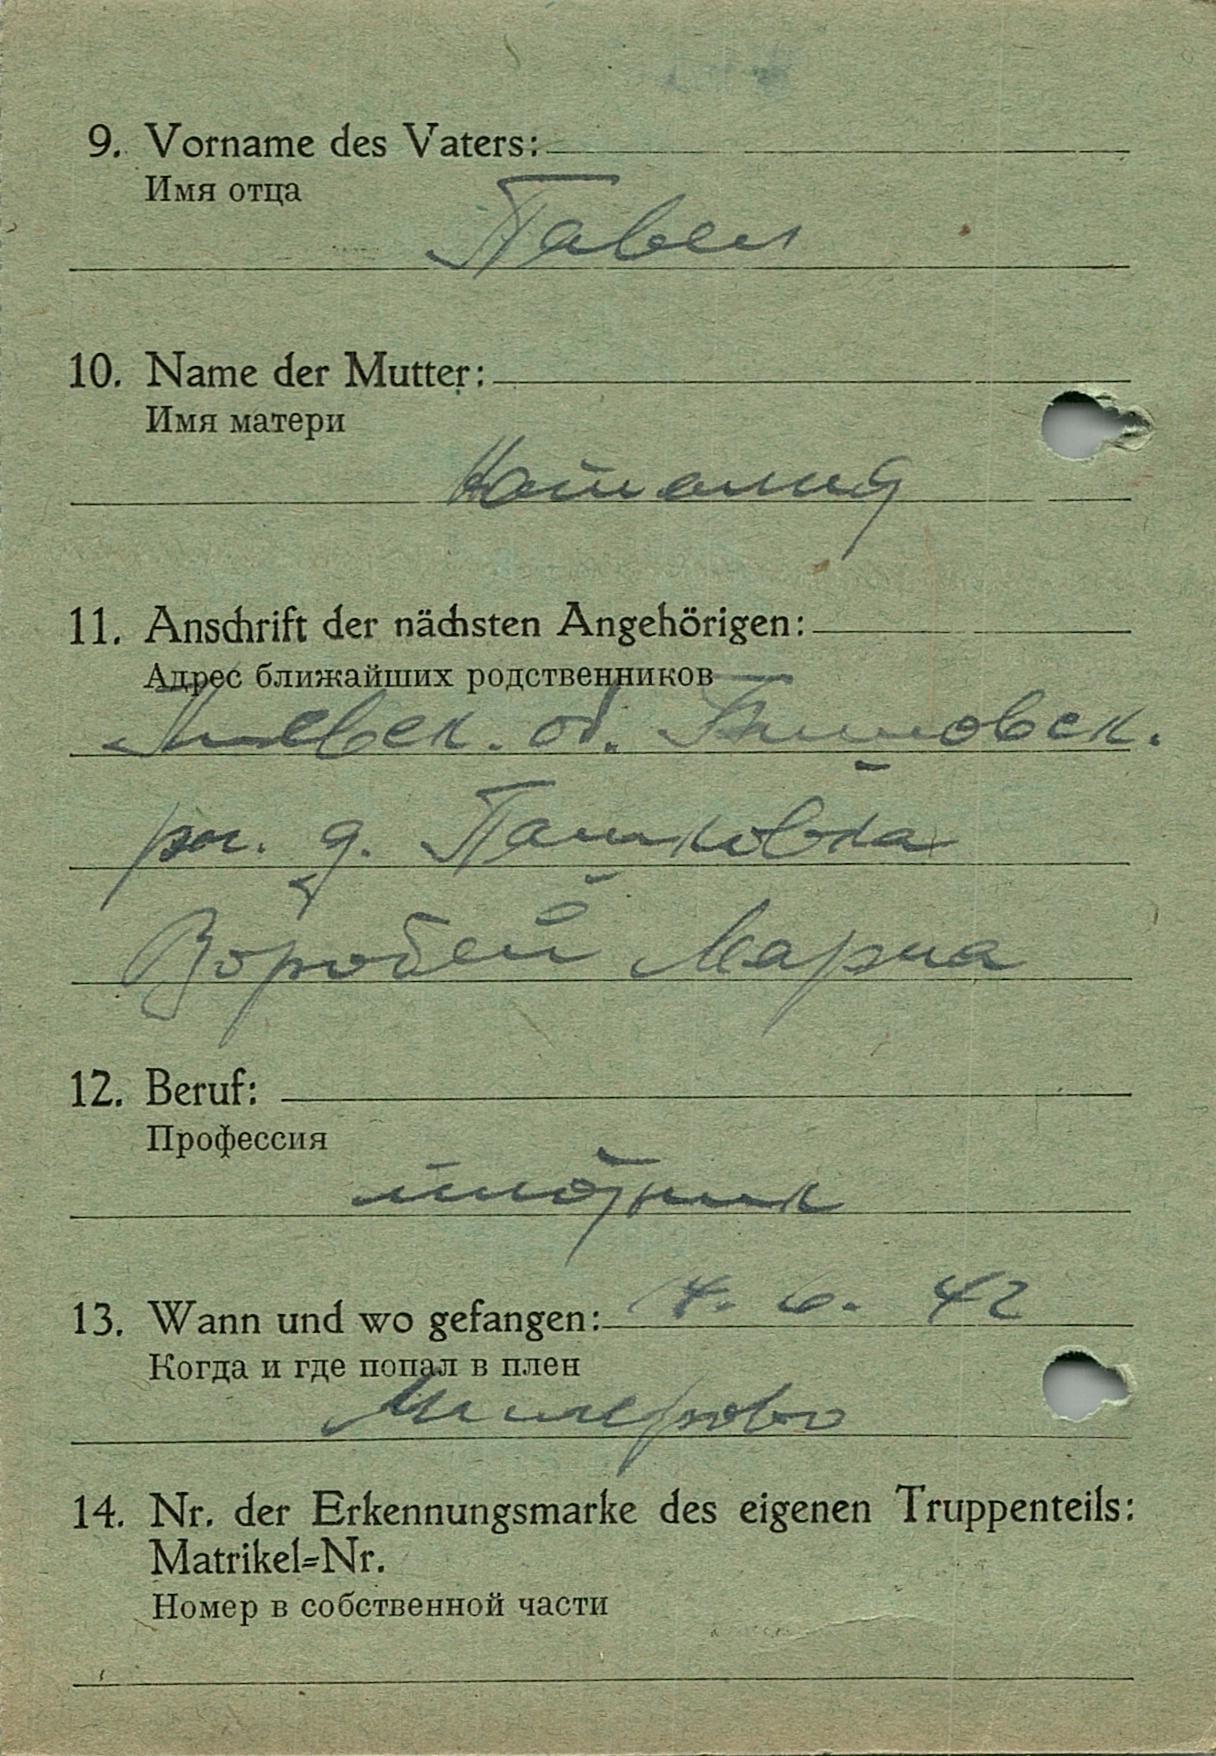 9. Vorname des Vaters:
Имя отца
Павел
10. Name der Mutter:
Имя матери
Наталия
11. Anschrift der nächsten Angehörigen:
Адрес ближайших родственников
об.
д. Пашковка
Воробей Мария
12. Beruf:
Профессия
плотник
13. Wann und wo gefangen: 6. 42
Когда и где попал в плен
Милерово
14. Nr. der Erkennungsmarke des eigenen Truppenteils:
Matrikel=Nr.
Номер в собственной части